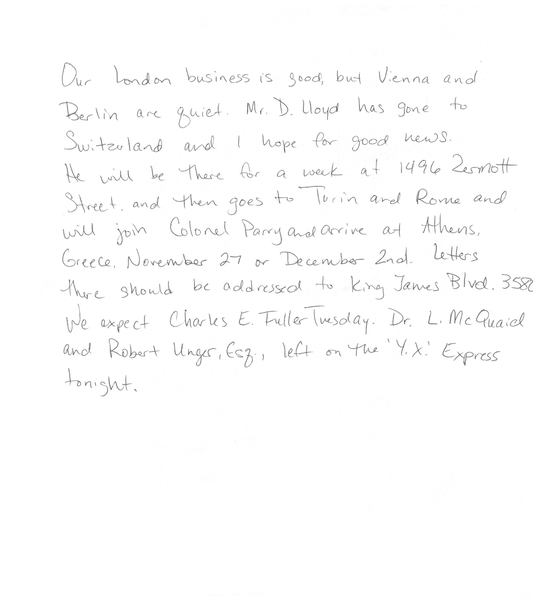 Our London business is good, but Vienna and
Berlin are quiet. Mr. D. Lloyd has gone to
Switzerland and I hope for good news.
He will be there for a week at 1496 Zermott
Street. and then goes to Turin and Rome and
will join Colonel Parry and arrive at Athens,
Greece, November 27 or December 2nd. Letters
there should be addressed to King James Blvd. 3580
We expect Charles E. Fuller Tuesday. Dr. L. McQuaid
and Robert Unger, Esq., left on the 'Y.X.' Express
tonight.